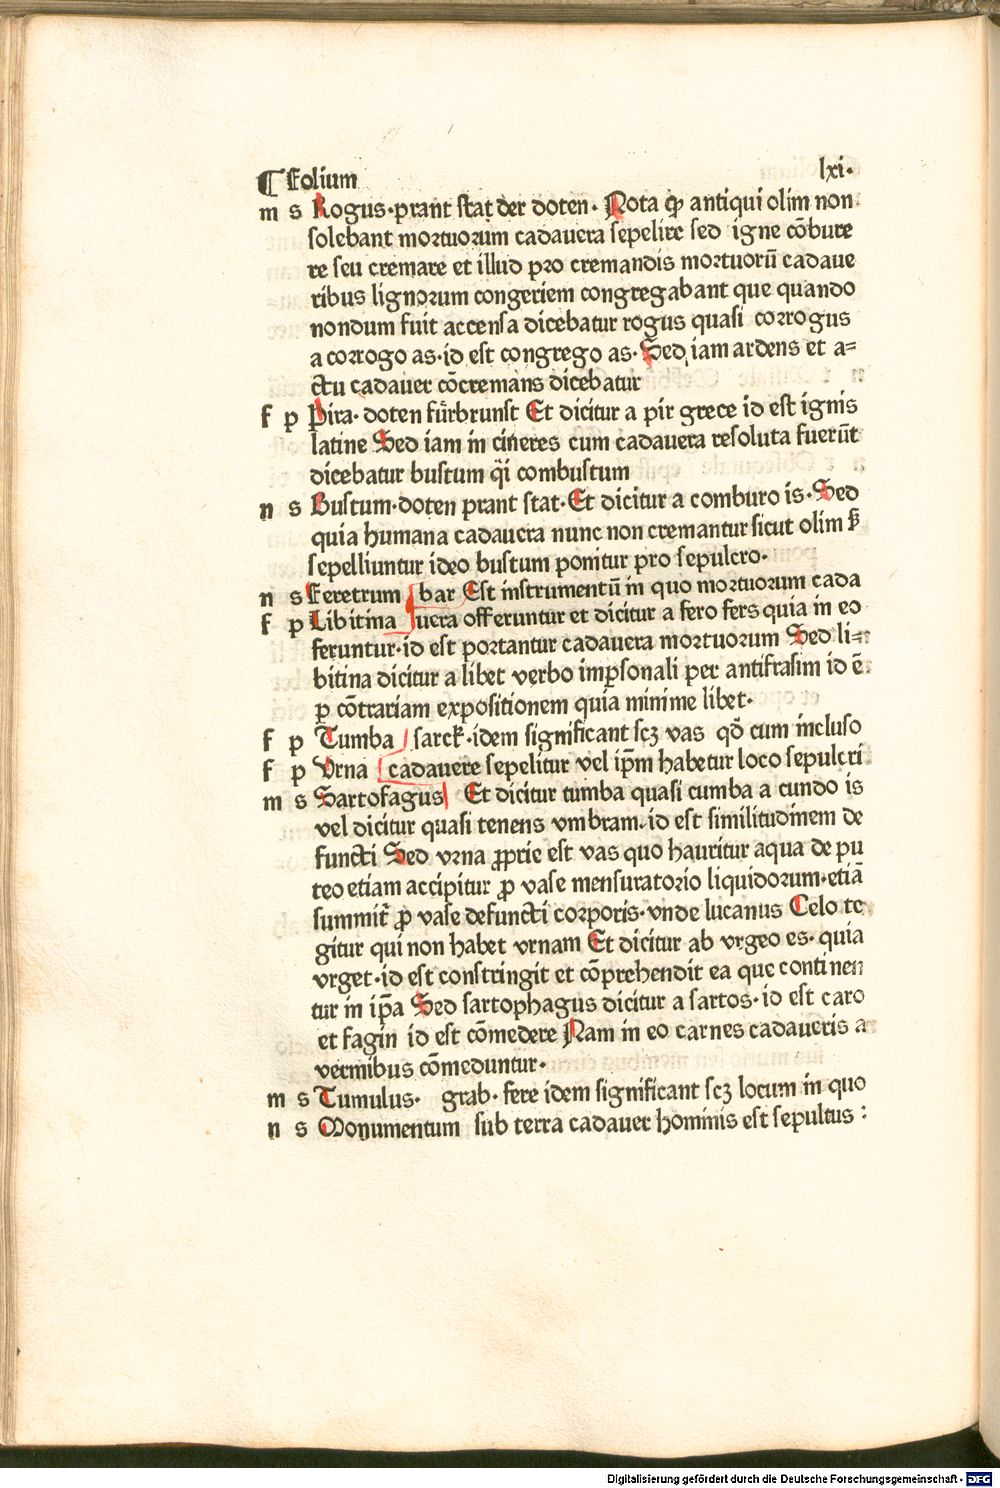 ¶ Folium lxi.
m s Rogus·prant stat der doten· Nota ꝙ antiqui olim non
solebant mortuorum cadauera sepelire sed igne cōbure
re seu cremare et illud pro cremandis mortuorū cadaue
ribus lignorum congeriem congregabant que quando
nondum fuit accensa dicebatur rogus quasi corrogus
a corrogo as·id est congrego as· Sed iam ardens et a=
ctu cadauer cōcremans dicebatur
f p Pira· doten fürbrunst Et dicitur a pir grece id est ignis
latine Sed iam in cineres cum cadauera resoluta fuerūt
dicebatur bustum q̄i combustum
n s Bustum·doten prant stat·Et dicitur a comburo is·Sed
quia humana cadauera nunc non cremantur sicut olim ꝭ
sepelliuntur ideo bustum ponitur pro sepulcro·
n s Feretrum bar Est instrumentū in quo mortuorum cada
f p Libitina uera offeruntur et dicitur a fero fers quia in eo
feruntur·id est portantur cadauera mortuorum Sed li=
bitina dicitur a libet verbo imꝑsonali per antifrasim id ē
ꝑ cōtrariam expositionem quia minime libet·
f p Tumba sarck·idem significant scꝫ vas qd̄ cum incluso
f p Vrna cadauere sepelitur vel ip̄m habetur loco sepulcri
m s Sartofagus Et dicitur tumba quasi cumba a cundo is
vel dicitur quasi tenens vmbram·id est similitudinem de
functi Sed vrna ꝓprie est vas quo hauritur aqua de pu
teo etiam accipitur ꝓ vase mensuratorio liquidorum·etiā
summit̄ ꝓ vase defuncti corporis·vnde lucanus Celo te
gitur qui non habet vrnam Et dicitur ab vrgeo es· quia
vrget·id est constringit et cōprehendit ea que continen
tur in ip̄a Sed sartophagus dicitur a sartos·id est caro
et fagin id est cōmedere Nam in eo carnes cadaueris a
vermibus cōmeduntur·
m s Tumulus· grab· fere idem significant scꝫ locum in quo
n s Monumentum sub terra cadauer hominis est sepultus :
Digitalisierung gefördert durch die Deutsche Forschungsgemeinschaft - DFG